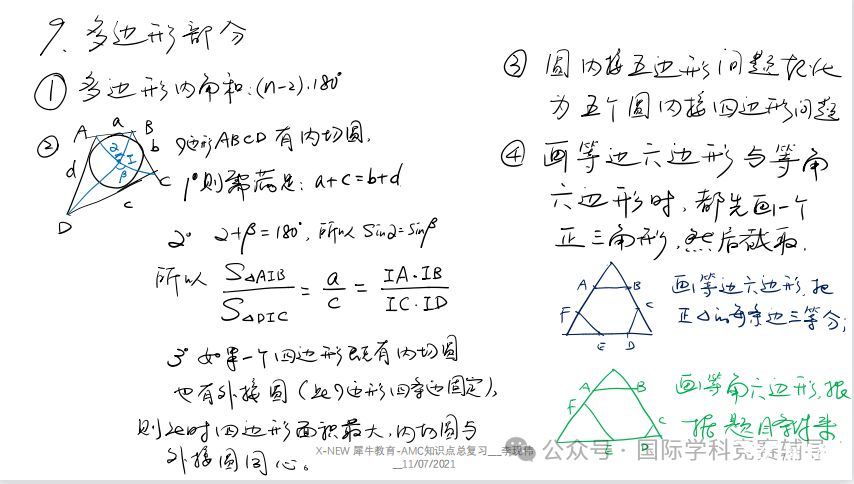 9. 多边形部分
① 多边形内角和:(n-2)·180°
② 四边形ABCD有内切圆,
A a B
d b
I
α
β
C
c
D
1° 则需满足: a+c=b+d
2° α+β=180°, 所以 sinα=sinβ
所以 S△AIB / S△DIC = a/c = IA·IB / IC·ID
3° 如果一个四边形既有内切圆
也有外接圆(此四边形四条边固定),
则此时四边形面积最大,内切圆与
外接圆同心。
③ 圆内接五边形问题转化
为五个圆内接四边形问题
④ 画等边六边形与等角
六边形时,都先画一个
正三角形,然后截取.
A B
F C
E D
画等边六边形,把
正△的每条边三等分;
A B
F C
E D
画等角六边形,根
据题目条件来
公众号·国际学科竞赛辅导
X-NEW 犀牛教育-AMC知识点总复习__李现伟
__11/07/2021